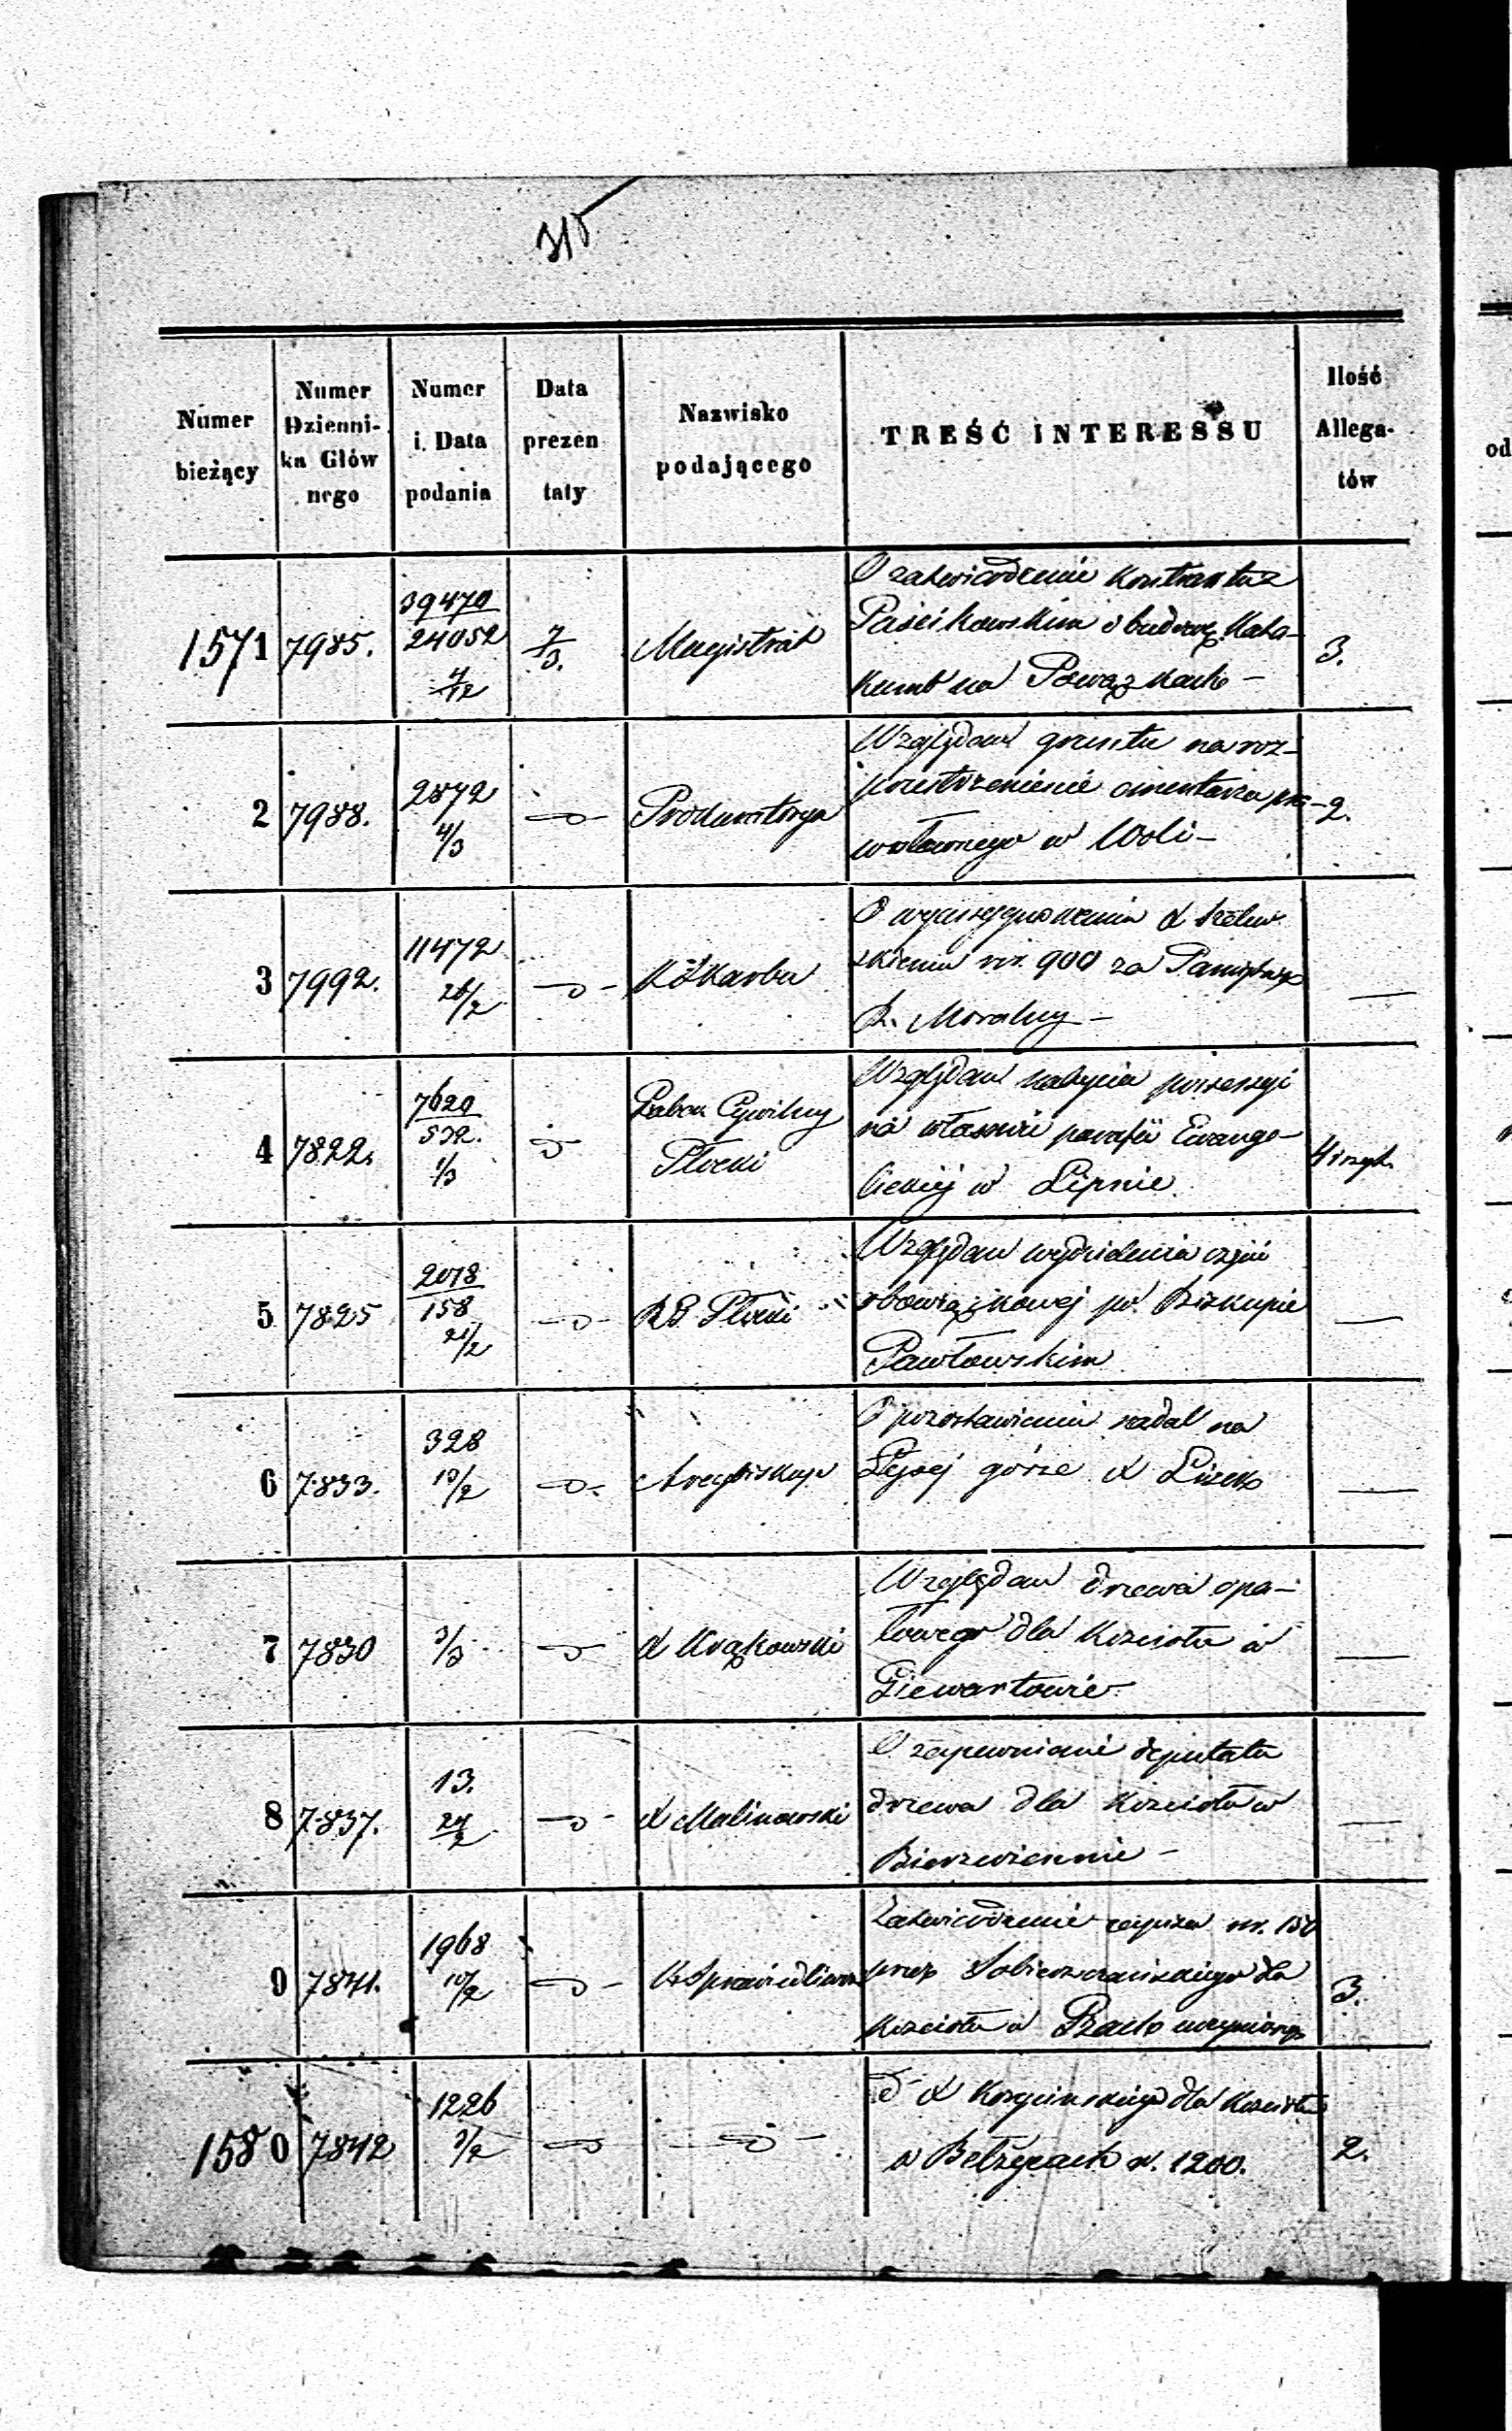 315
Numer bieżący
Numer Dzienni- ka Głów nego
Numer i Data podania
Data prezen taty
Nazwisko podającego
TREŚĆ INTERESSU
Ilość Allega- tów
1571 7985. 39470 24052 4/12 7/3. Magistrat
O zatwierdzenie kontraktu z
Paścikowskim o budowę Kata-
kumb na Powązkach –
3.
2 7988. 2872 4/3 Prokuratorya
Względem gruntu na roz-
przestrzenienie cmentarza pra-
wosławnego w Woli –
2.
3 7992. 11472 26/2 K Skarbu
O wyassygnowanie X
skiemu rs. 900 za Pamiętnik
R. Moralny –
—
4 7822. 7620 532. 1/3 Guber. Cywilny
Płocki
Względem nabycia possessyi
na własność parafii Ewange-
lickiej w Lipnie
4 i szyk.
5 7825 2018 158 21/2 R G. Płocki
Względem wydzielenia części
obowiązkowej po Biskupie
Pawłowskim
—
6 7833. 328 10/2 Arcybiskup
O pozostawienie nadal na
Łysej górze X
—
7 7830 3/3 X Krąkowski
Względem drzewa opa-
łowego dla Kościoła w
Giewartowie
—
8 7837. 13. 24/2 X Malinowski
O zapewnienie deputatu
drzewa dla Kościoła w
Bierzwiennie –
—
9 7841. 1968 10/2 K Sprawiedliwości
Zatwierdzenie zapisu rs. 150
przez dla
Kościoła w uczyniony
3.
1580 7842 1226 3/2
X dla Kościoła
w Bełżycach rs. 1200.
2.